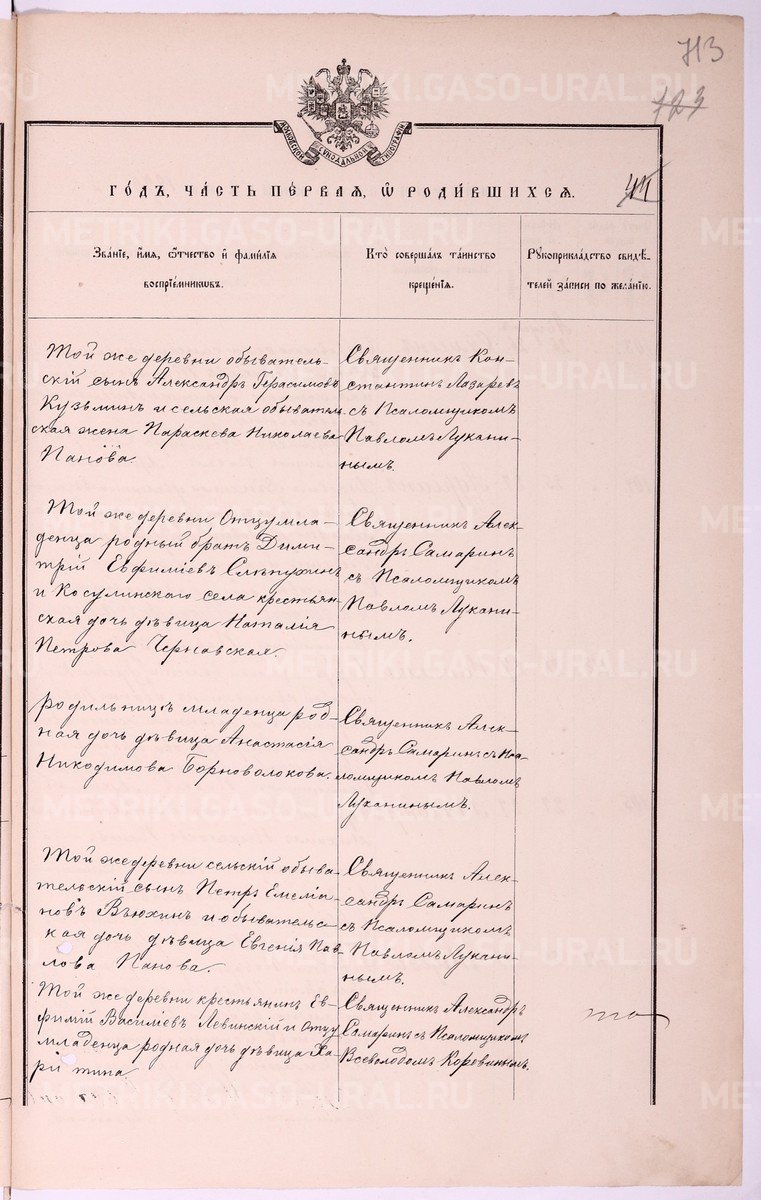 713
723
МОСКОВСКОЙ СѴНОДАЛЬНОЙ ТИПОГРАФІИ
ГО́ДЪ, ЧА́СТЬ ПЕ́РВАЯ, Ѽ РОДИ́ВШИХСЯ.
Зва́нїе, и҆́мя, ѻ҆́тчество и҆ фами́лїя
воспрїе́мникѡвъ.
Кто̀ соверша́лъ та́инство
креще́нїя.
Рꙋкоприкла́дство свидѣ́-
телей за́писи по жела́нїю.
Той же деревни обыватель-
скій сынъ Александръ Герасимовъ
Кузьминъ и сельская обыватель
ская жена Параскева Николаева
Панова.
Священникъ Кон-
стантинъ Лазаревъ
съ Псаломщикомъ
Павломъ Лукани-
нымъ.
Той же деревни Отцу мла-
денца родный братъ Дими-
трій Евфиміевъ Слѣпухинъ
и Косулинскаго села крестьян-
ская дочь дѣвица Наталія
Петрова Чернавская.
Священникъ Алек-
сандръ Самаринъ
съ Псаломщикомъ
Павломъ Лукани-
нымъ.
Родильницѣ младенца род-
ная дочь дѣвица Анастасія
Никодимова Борноволокова.
Священникъ Алек-
сандръ Самаринъ съ Пса-
ломщикомъ Павломъ
Луканинымъ.
Той же деревни сельскій обыва-
тельскій сынъ Петръ Емеліа-
новъ Вьюхинъ и обывательс-
кая дочь дѣвица Евгенія Пав-
лова Панова.
Священникъ Алек-
сандръ Самаринъ
съ Псаломщикомъ
Павломъ Лукани-
нымъ.
Той же деревни крестьянинъ Ев-
фимій Василіевъ Левинскій и Отцу
младенца родная дочь дѣвица Ха-
рітина
Священникъ Александръ
Самаринъ съ Псаломщикомъ
Всеволодомъ Коровинымъ.
METRIKI.GASO-URAL.RU